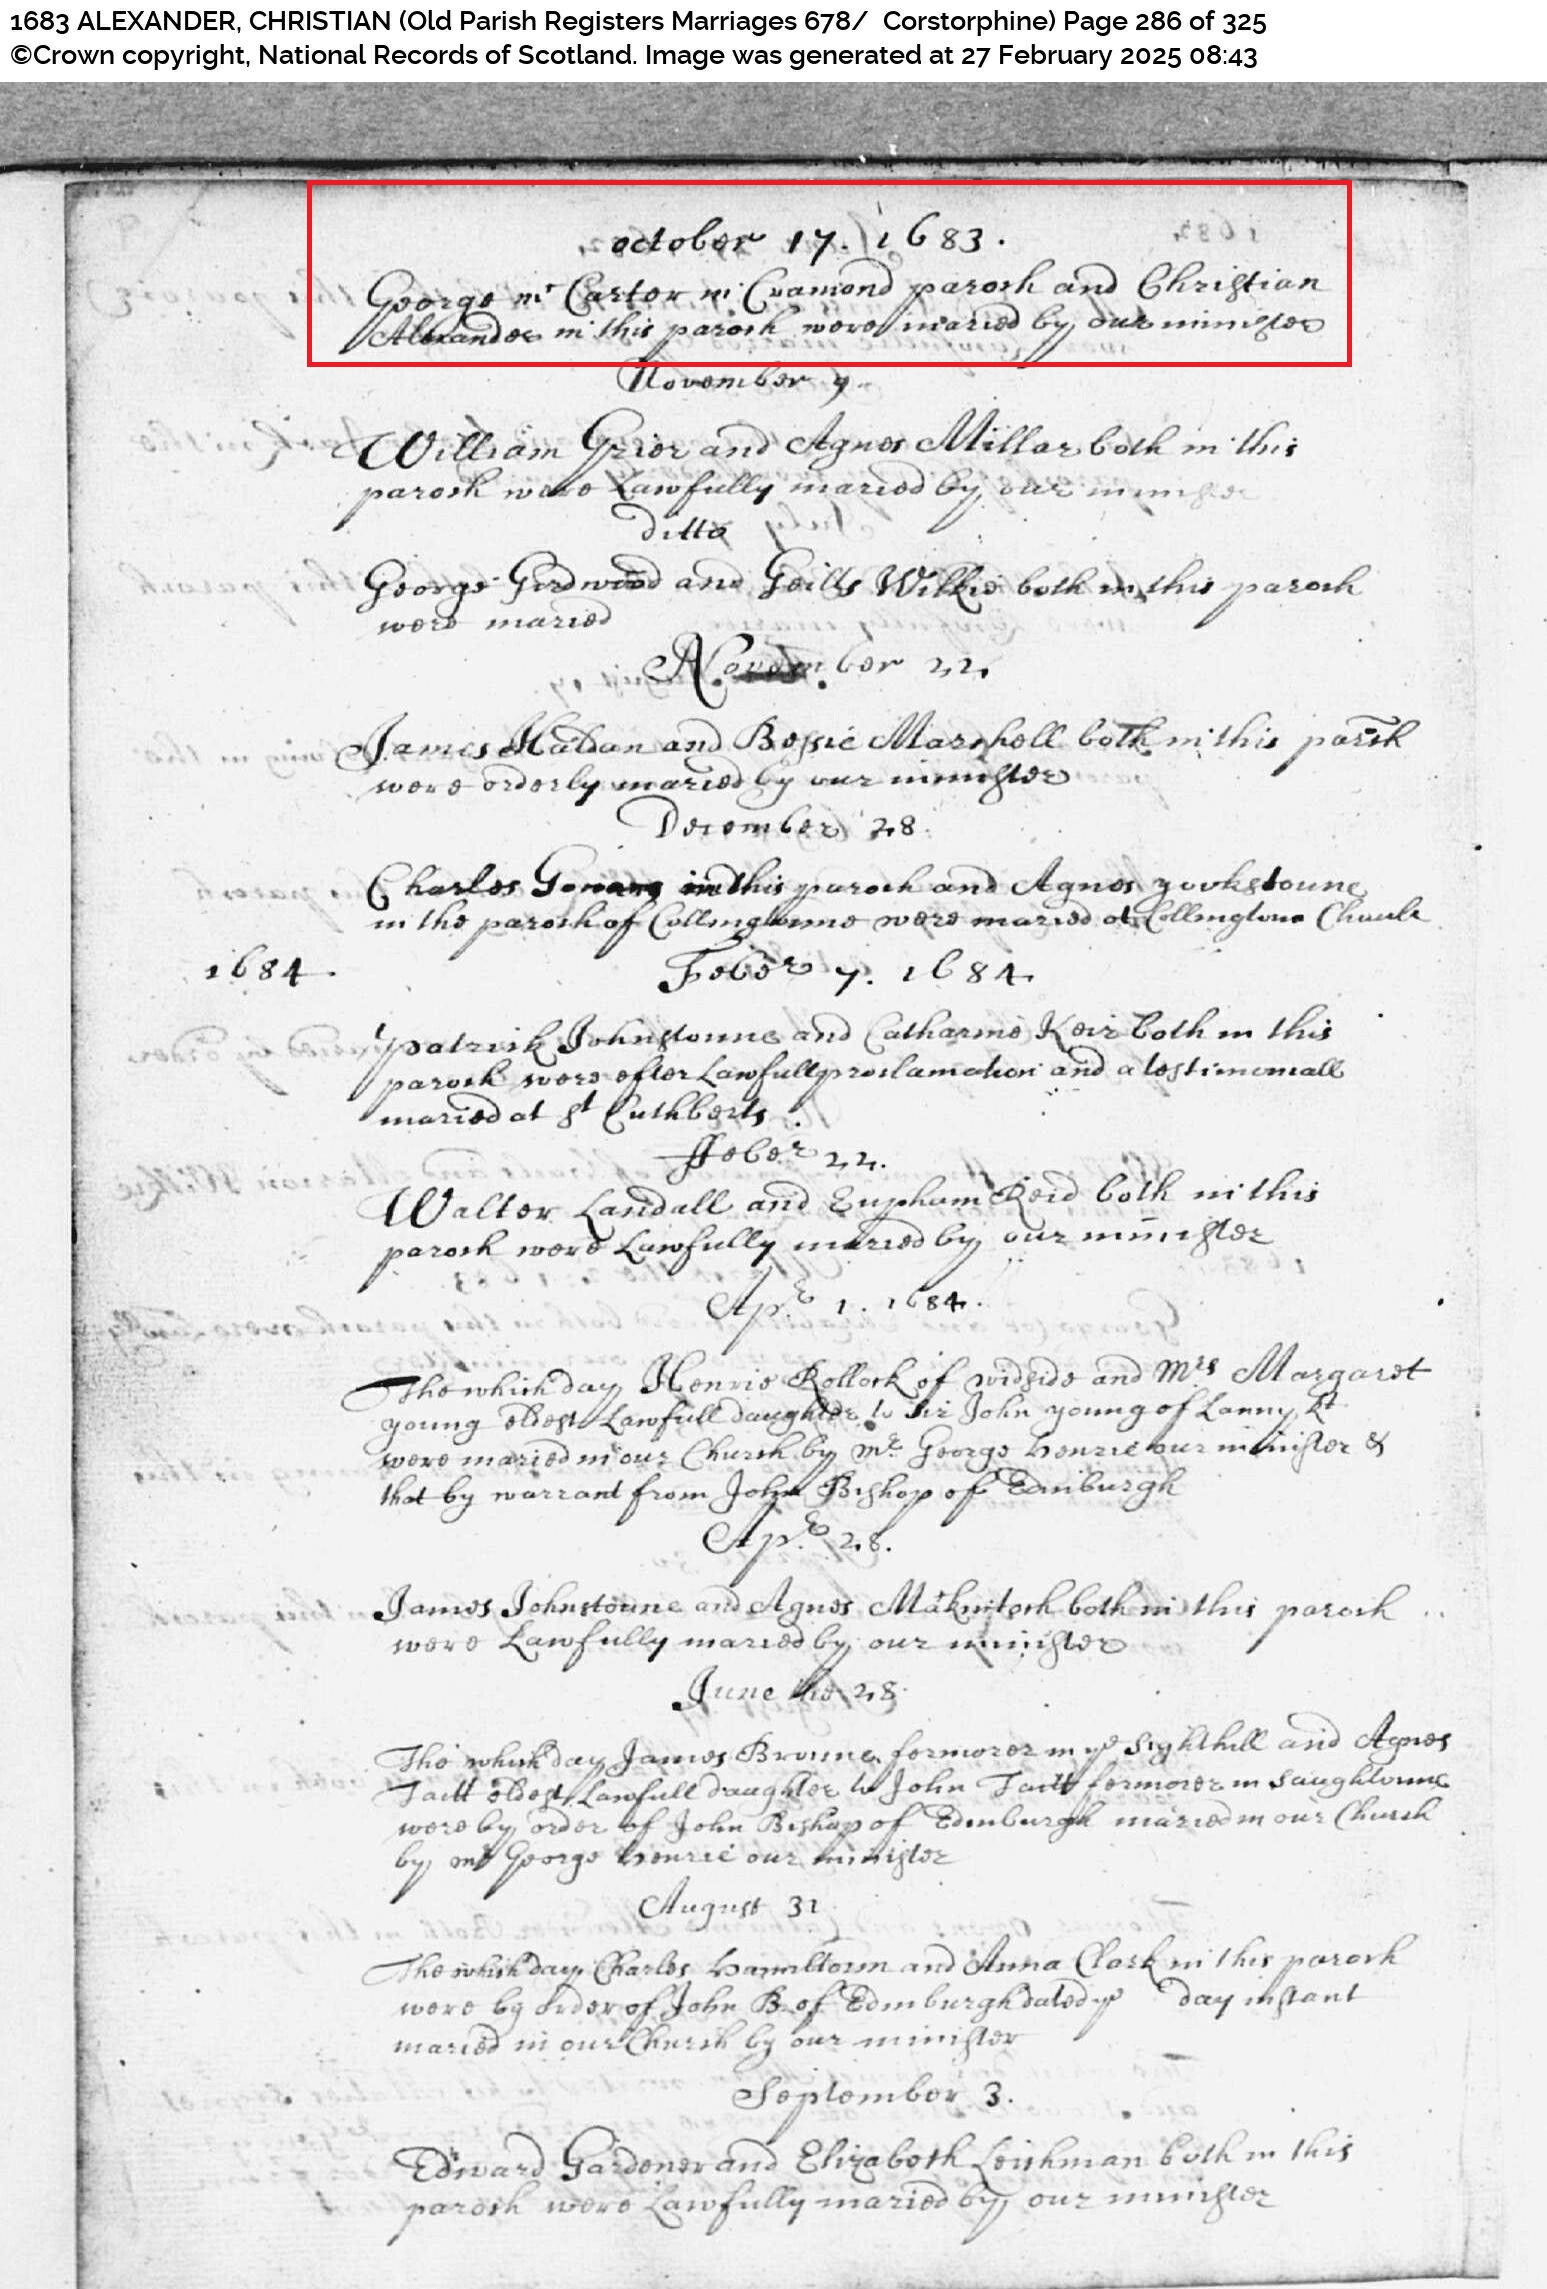 1683 ALEXANDER, CHRISTIAN (Old Parish Registers Marriages 678/ Corstorphine) Page 286 of 325
©Crown copyright, National Records of Scotland. Image was generated at 27 February 2025 08:43
october 17. 1683.
George mc Carter in Cramond paroch and Christian
Alexander in this paroch were maried by our minister
November 9.
William Grier and Agnes Millar both in this
paroch were Lawfully maried by our minister
ditto
George Girdwood and Geills Wilkie both in this paroch
were maried
November 22.
James Haldan and Bessie Marshell both in this parish
were orderly maried by our minister
December 28.
Charles in this paroch and Agnes yorkstoune
in the paroch of Collingtoune were maried at Collingtoun
1684. Feber 7. 1684.
patrick Johnstoune and Catharine Keir both in this
paroch were efter Lawfull proclamation and a testimoniall
maried at St Cuthberts
ffeber 22.
Walter Landall and Eupham Reid both in this
paroch were Lawfully maried by our minister
Apr 1. 1684.
The which day Henrie Rollock of and Mrs Margaret
young eldest Lawfull daughter to Sir John young of Lanny kt
were maried in our Church by Mr George henrie our minister &
that by warrant from John Bishop of Edinburgh
Apr 28.
James Johnstoune and Agnes Makintosh both in this paroch
were Lawfully maried by our minister
June the 28.
The which day James Broune fermorer in ye Sighthill and Agnes
Taitt eldest Lawfull daughter to John Taitt fermorer in saughtoune
were by order of John Bishop of Edinburgh maried in our Church
by mr George henrie our minister
August 31
The which day Charles hamiltoun and Anna Clark in this paroch
were by order of John B. of Edinburgh dated ye day instant
maried in our Church by our minister
September 3.
Edward Gardener and Elizabeth Leishman both in this
paroch were Lawfully maried by our minister